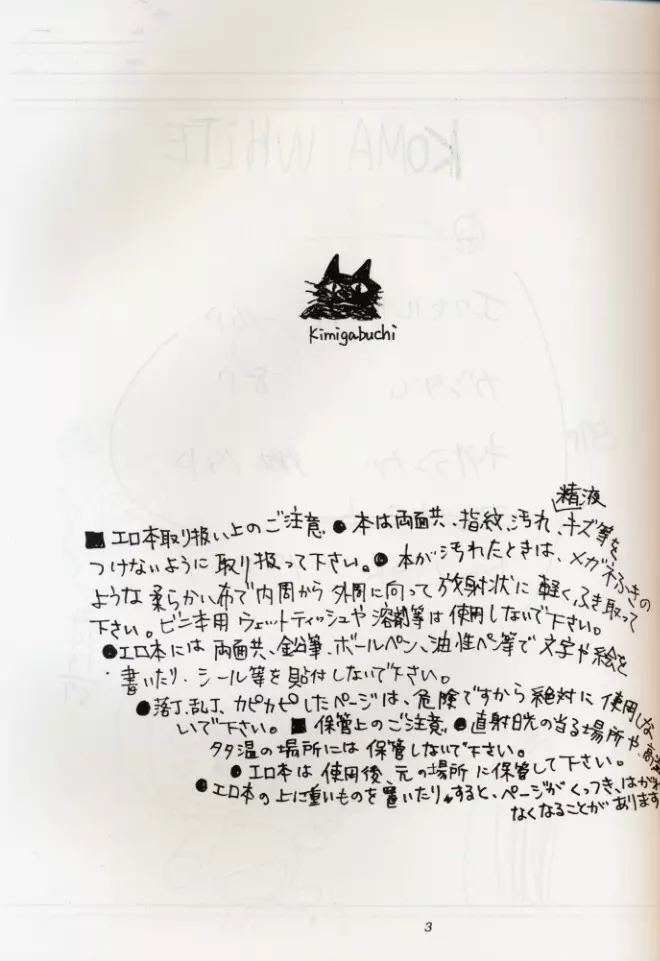 KOMA WHITE
Kimigabuchi
精液
■ エロ本取り扱い上のご注意 ● 本は両面共、指紋、汚れ、キズ等を
つけないように取り扱って下さい。● 本が汚れたときは、メガネふきの
ような柔らかい布で内周から外周に向って放射状に軽くふき取って
下さい。ビニ本用ウェットティッシュや溶剤等は使用しないで下さい。
● エロ本には両面共、鉛筆、ボールペン、油性ペン等で文字や絵を
書いたり、シール等を貼付しないで下さい。
● 落丁、乱丁、カピカピしたページは、危険ですから絶対に使用しな
いで下さい。■ 保管上のご注意 ● 直射日光の当る場所や、高温
多湿の場所には保管しないで下さい。
● エロ本は使用後、元の場所に保管して下さい。
● エロ本の上に重いものを置いたりすると、ページがくっつき、はがれ
なくなることがあります
3